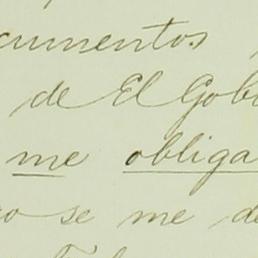 cumentos
de El Gob
me obliga
o se me de